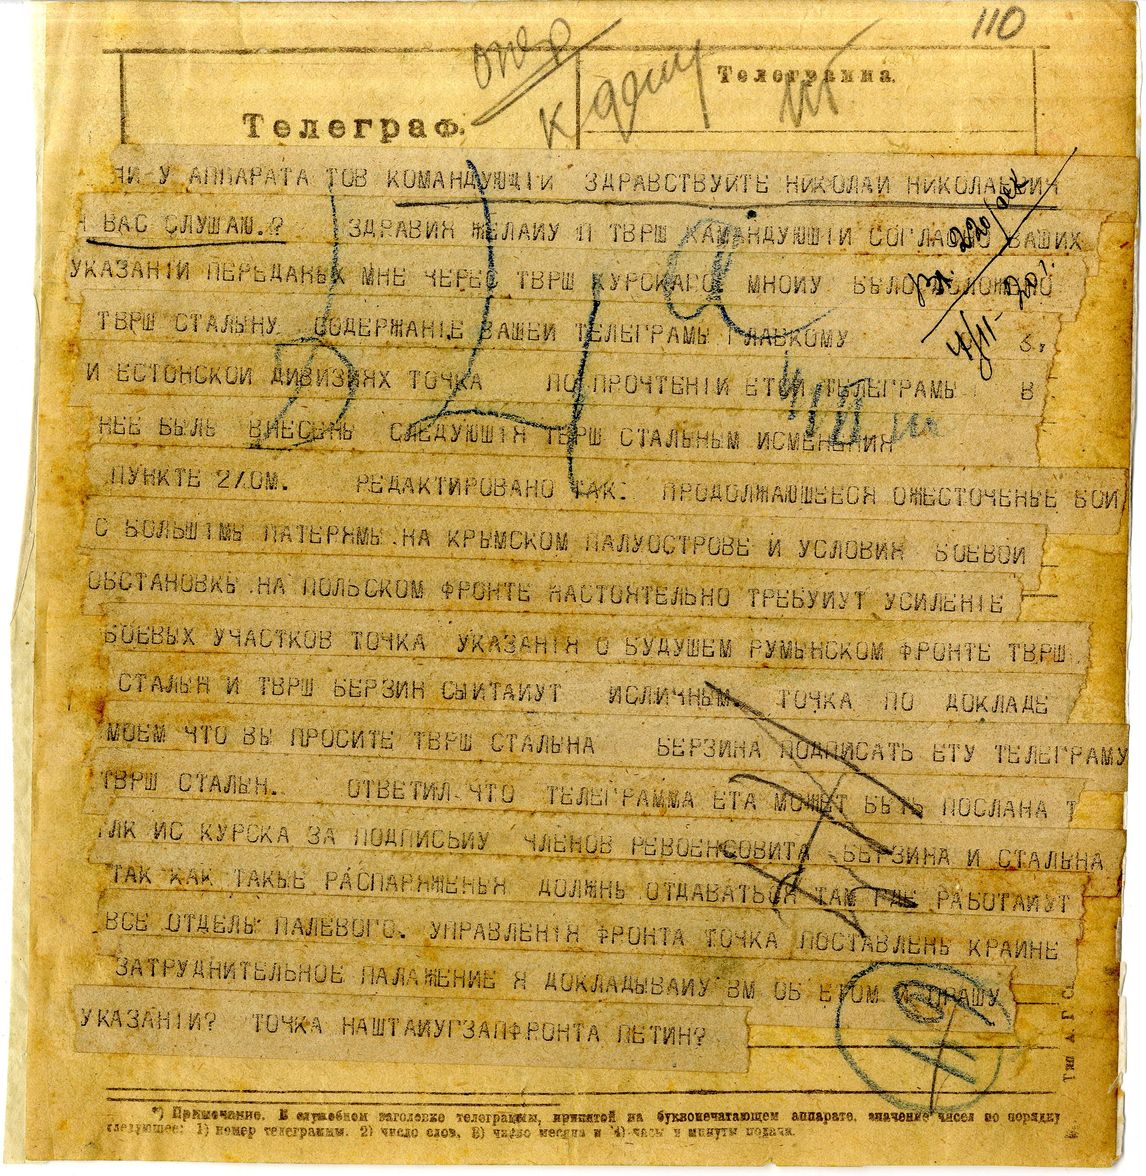 110
опер
Телеграмма.
Телеграф.
У АППАРАТА ТОВ КОМАНДУЮЩIЙ ЗДРАВСТВУЙТЕ НИКОЛАЙ НИКОЛАЕВИЧ
ВАС СЛУШАЮ.? ЗДРАВИЯ ЖЕЛАЙУ ТВРШ КАМАНДУЮШIЙ СОГЛАСНО ВАШИХ
УКАЗАНIЙ ПЕРЕДАНЫХ МНЕ ЧЕРЕС ТВРШ КУРСКАГО МНОЙУ БЫЛО ДОЛОЖЕНО
ТВРШ СТАЛЫНУ СОДЕРЖАНIЕ ВАШЕЙ ТЕЛЕГРАМЫ ГЛАВКОМУ
И ЕСТОНСКОЙ ДИВИЗИЯХ ТОЧКА ПО ПРОЧТЕНIИ ЕТОЙ ТЕЛЕГРАМЫ В
НЕЕ БЫЛЬ ВНЕСЕНЫ СЛЕДУЮШIЯ ТВРШ СТАЛЬНЫМ ИСМЕНЕНИЯ
ПУНКТЕ 2/ОМ. РЕДАКТИРОВАНО ТАК: ПРОДОЛЖАЮШЕЕСЯ ОЖЕСТОЧЕНЫЕ БОИ
С БОЛЬШIМЫ ПАТЕРЯМЫ НА КРЫМСКОМ ПАЛУОСТРОВЕ И УСЛОВИЯ БОЕВОЙ
ОБСТАНОВКЫ НА ПОЛЬСКОМ ФРОНТЕ НАСТОЯТЕЛЬНО ТРЕБУЙУТ УСИЛЕНIЕ
БОЕВЫХ УЧАСТКОВ ТОЧКА УКАЗАНIЯ О БУДУШЕМ РУМЫНСКОМ ФРОНТЕ ТВРШ
СТАЛЫН И ТВРШ БЕРЗИН СЫИТАЙУТ ИСЛИЧНЫМ. ТОЧКА ПО ДОКЛАДЕ
МОЕМ ЧТО ВЫ ПРОСИТЕ ТВРШ СТАЛЫНА БЕРЗИНА ПОДПИСАТЬ ЕТУ ТЕЛЕГРАМУ
ТВРШ СТАЛЫН. ОТВЕТИЛ ЧТО ТЕЛЕГРАММА ЕТА МОЖЕТ БЫТЬ ПОСЛАНА Т
ЛК ИС КУРСКА ЗА ПОДПИСЬЙУ ЧЛЕНОВ РЕВОЕНСОВИТА БЕРЗИНА И СТАЛЫНА
ТАК КАК ТАКЫЕ РАСПАРЯЖЕНЬЯ ДОЛЖНЫ ОТДАВАТЬСЯ ТАМ ГДЕ РАБОТАЙУТ
ВСЕ ОТДЕЛЫ ПАЛЕВОГО. УПРАВЛЕНIЯ ФРОНТА ТОЧКА ПОСТАВЛЕНЫ КРАЙНЕ
ЗАТРУДНИТЕЛЬНОЕ ПАЛАЖЕНИЕ Я ДОКЛАДЫВАЙУ ВМ ОБ ЕТОМ И ПРАШУ
УКАЗАНIЙ? ТОЧКА НАШТАЙУГЗАПФРОНТА ПЕТИН?
*) Примечание. В служебном заголовке телеграммы, принятой на буквопечатающем аппарате, значение чисел по порядку
следующее: 1) номер телеграммы. 2) число слов. 3) число месяца и 4) часы и минуты подачи.